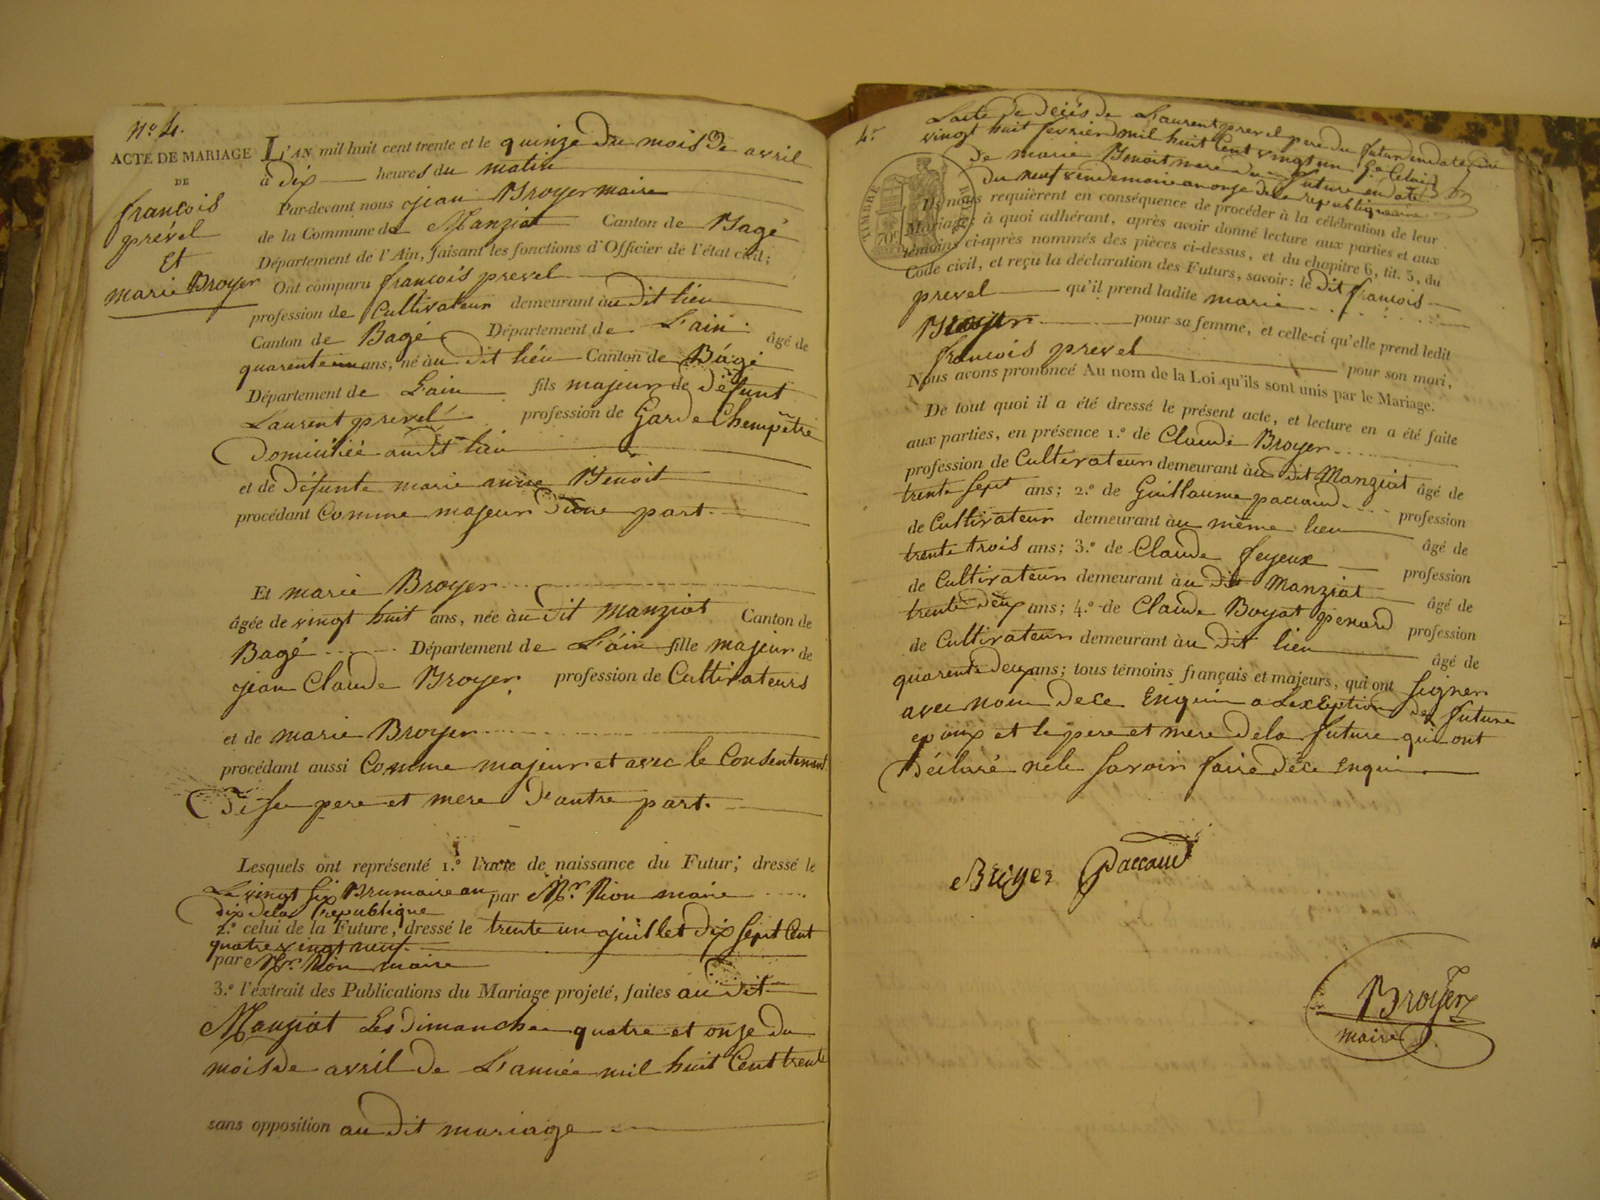 N.º 4.
ACTE DE MARIAGE
DE
françois
prével
Et
marie Broyer
L'AN mil huit cent trente et le quinze du mois De avril
à dix heures du matin
Par-devant nous jean Broyer maire
de la Commune de Manziat Canton de Bagé
Département de l'Ain, faisant les fonctions d'Officier de l'état civil;
Ont comparu françois prevel
profession de Cultivateur demeurant àudit lieu
Canton de Bagé Département de L'ain âgé de
quarente un ans, né àu dit lieu Canton de Bágé
Département de L'ain fils majeur de défunt
Laurent prevel profession de Garde Chempêtre
Domicilieé audit lieu
et de Défunte marie anne Benoit
procédant Comme majeur D'une part.
Et marie Broyer
âgée de vingt huit ans, née àu dit manziat Canton de
Bagé Département de L'áin fille majeur de
jean Claude Broyer profession de Cultivateurs
et de marie Broyer
procédant aussi Comme majeur et avec le Consentement
De se pere et mere D'autre part.
Lesquels ont représenté 1.º l'acte de naissance du Futur; dressé le
Le vingt Six Brumaire an par Mr. Rion maire
dix dela republique
2.º celui de la Future, dressé le trente un ajuillet dix sept Cent
quatre vingt neuf.
par Mr. Rion maire
3.º l'extrait des Publications du Mariage projeté, faites au dit
Manziat Les dimanche quatre et onze du
mois de avril de L'année mil huit Cent trente
sans opposition audit mariage
4.º L'acte de déçés de Laurent prevel pere du futur en date du
vingt huit fevrier mil huit Cent vingt un 5.º Celui
de marie Benoit mere du future en date
du neuf vendemiaire an onze dela republique
TIMBRE ROYAL
70c
Ils nous requièrent en conséquence de procéder à la célébration de leur
Mariage; à quoi adhérant, après avoir donné lecture aux parties et aux
témoins ci-après nommés des pièces ci-dessus, et du chapitre 6, tit. 5, du
Code civil, et reçu la déclaration des Futurs, savoir: le dit françois
prevel qu'il prend ladite marie
Broyer pour sa femme, et celle-ci qu'elle prend ledit
françois prevel pour son mari,
Nous avons prononcé Au nom de la Loi qu'ils sont unis par le Mariage.
De tout quoi il a été dressé le présent acte, et lecture en a été faite
aux parties, en présence 1.º de Claude Broyer
profession de Cultivateur demeurant àu dit Manziat âgé de
trente sept ans; 2.º de Guillaume paccaud profession
de Cultivateur demeurant àu même lieu âgé de
trente trois ans; 3.º de Claude feyeux profession
de Cultivateur demeurant àu dit Manziat âgé de
trente deux ans; 4.º de Claude Boyat penard profession
de Cultivateur demeurant àu dit lieu âgé de
quarente deux ans; tous témoins français et majeurs, qui ont signer
avec nous dece Enquiri a L'exception des future
epoux et le pere et mere dela future qui ont
Déclaré nele Savoir faire dece enqui
Broyer Paccaud
Broyer
maire